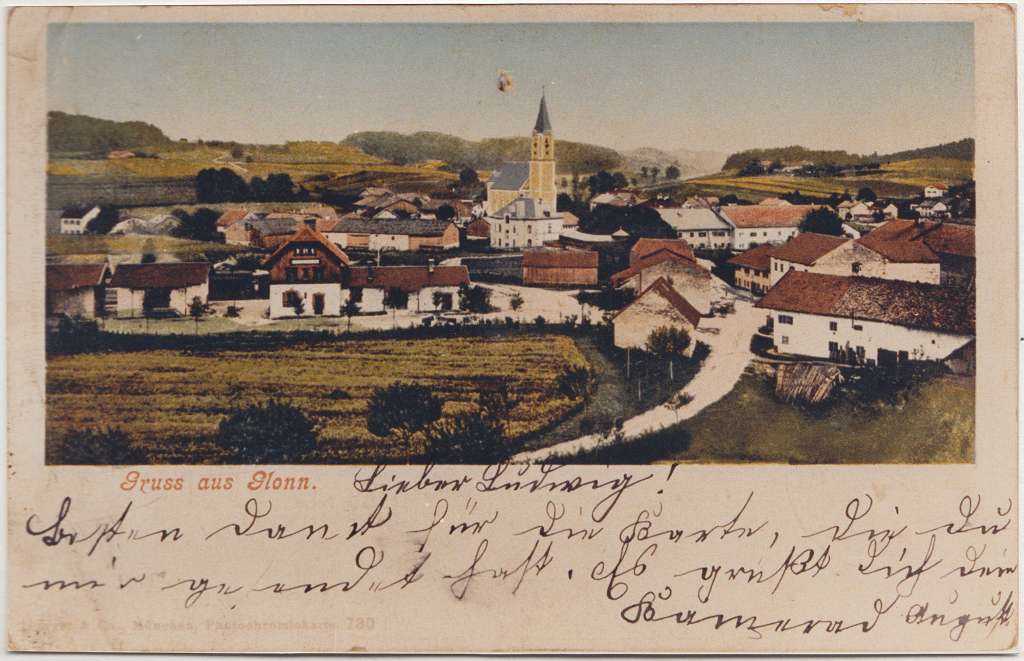 Gruss aus Glonn. Lieber Ludwig!
Besten Danck für die Karte, die Du
mir gesendet hast. Es grüßt Dich dein
Kamerad August
& Co., München, Photochromiekarte. 780